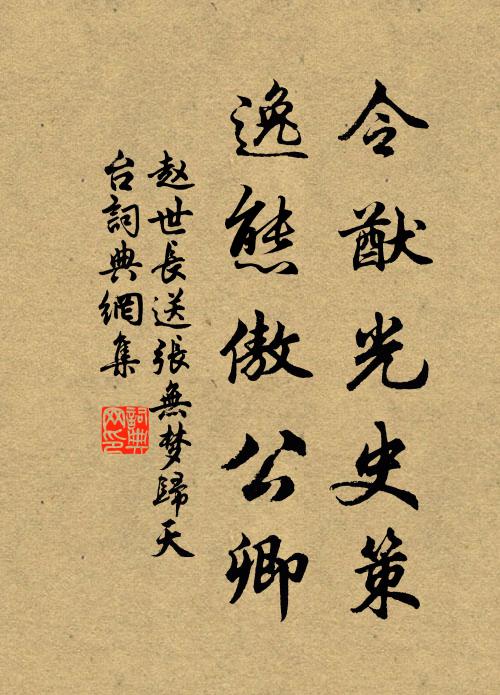 令猷光史策
逸態傲公卿
赵世長送張無梦歸天
台詞典網集
詞典网印